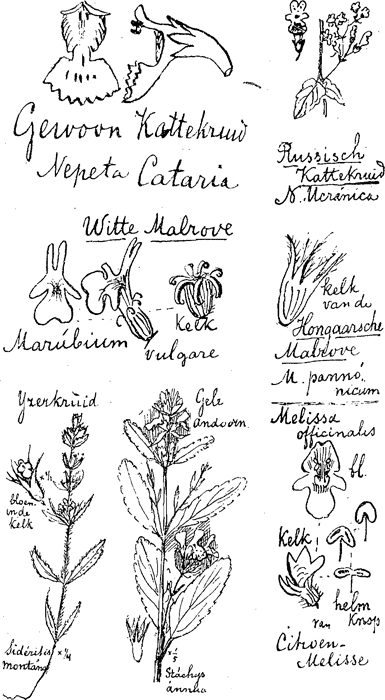 Gewoon Kattekruid
Nepeta Cataria
Russisch
Kattekruid
N. Ucránica
Witte Malrove
Kelk
Marúbium vulgare
kelk
van de
Hongaarsche
Malrove
M. pannó-
nicum
Yzerkruid
bloem
in de
Kelk
Sidéritis
montána
x ¼
Gele
andoorn
x ⅕
Stáchys
ánnua
Melissa
officinalis
bl.
Kelk
helm
knop
van
Citroen-
Melisse